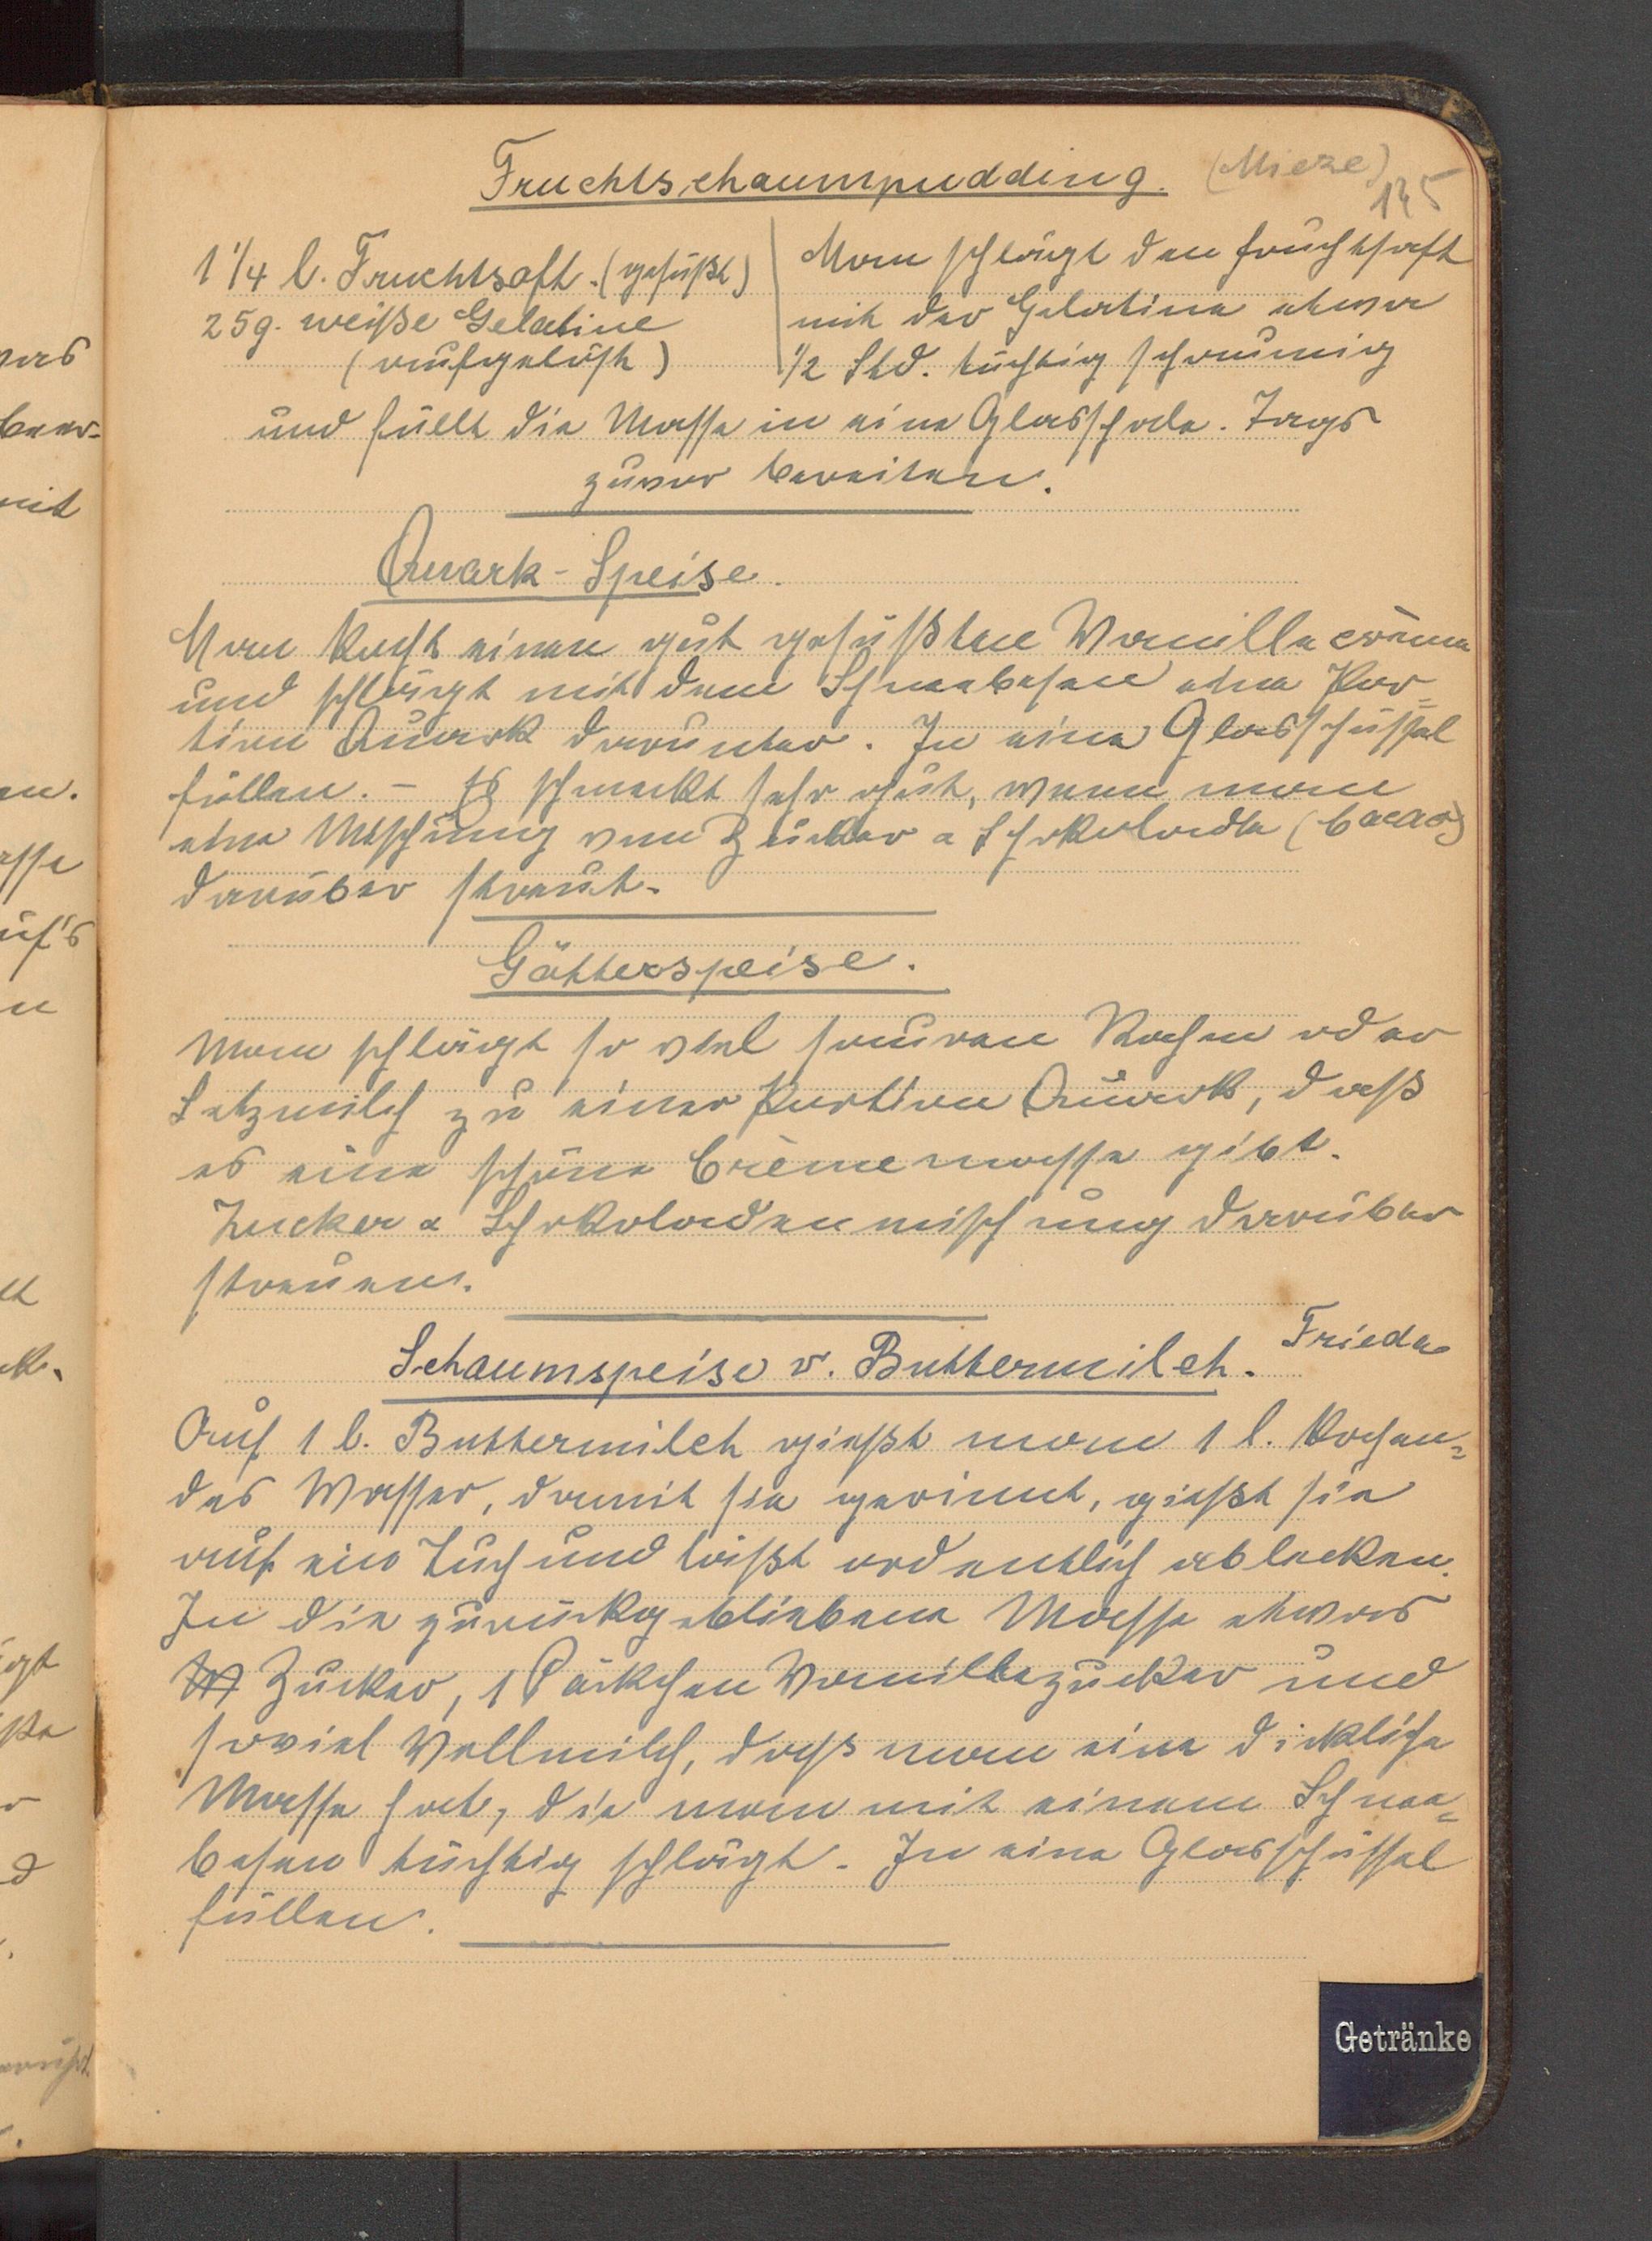 Fruchtschaumpudding. (Mieze)
125
1 1/4 l. Fruchtsaft. (gesüßt)
25 g. weiße Gelatine
(aufgelöst)
Man schlägt den Fruchtsaft
mit der Gelatine etwa
1/2 Std. tüchtig schaumig
und füllt die Masse in eine Glasschale. Tags
zuvor bereiten.
Quark-Speise.
Man kocht einen gut gesüßten Vanillecrème
und schlägt mit dem Schneebesen eine Por-
tion Quark darunter. In eine Glasschüssel
füllen. - Es schmeckt sehr gut, wenn man
eine Mischung von Zucker & Schokolade (Cacao)
darüber streut.
Götterspeise.
Man schlägt so viel sauren Rahm oder
Setzmilch zu einer Portion Quark, daß
es eine schöne Crèmemasse gibt.
Zucker & Schokoladenmischung darüber
streuen.
Schaumspeise v. Buttermilch. Frieda
Auf 1 l. Buttermilch gießt man 1 l. kochen=
des Wasser, damit sie gerinnt, gießt sie
auf ein Tuch und läßt ordentlich ablecken.
In die zurückgebliebene Masse etwas
Zucker, 1 Päckchen Vanillezucker und
soviel Vollmilch, daß man eine dickliche
Masse hat, die man mit einem Schnee=
besen tüchtig schlägt. In eine Glasschüssel
füllen.
Getränke